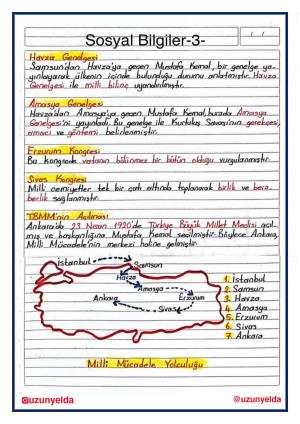 Sosyal Bilgiler-3-
/ /
Havza Genelgesi
Samsun'dan Havza'ya geçen Mustafa Kemal, bir genelge ya-
yınlayarak ülkenin içinde bulunduğu durumu anlatmıştır. Havza
Genelgesi ile milli bilinç uyandırılmıştır.
Amasya Genelgesi
Havza'dan Amasya'ya geçen Mustafa Kemal, burada Amasya
Genelgesi'ni yayınladı. Bu genelge ile Kurtuluş Savaşı'nın gerekçesi,
amacı ve yöntemi belirlenmiştir.
Erzurum Kongresi
Bu Kongrede vatanın bölünmez bir bütün olduğu vurgulanmıştır.
Sivas Kongresi
Milli cemiyetler tek bir çatı altında toplanarak birlik ve bera-
berlik sağlanmıştır.
TBMM'nin Açılması
Ankara'da 23 Nisan 1920'de Türkiye Büyük Millet Meclisi açıl-
mış ve başkanlığına Mustafa Kemal seçilmiştir. Böylece Ankara,
Milli Mücadele'nin merkezi haline gelmiştir.
İstanbul
Samsun
Havza
Amasya
Ankara
Erzurum
Sivas
1. İstanbul
2. Samsun
3. Havza
4. Amasya
5. Erzurum
6. Sivas
7. Ankara
Milli Mücadele Yolculuğu
@uzunyelda
@uzunyelda